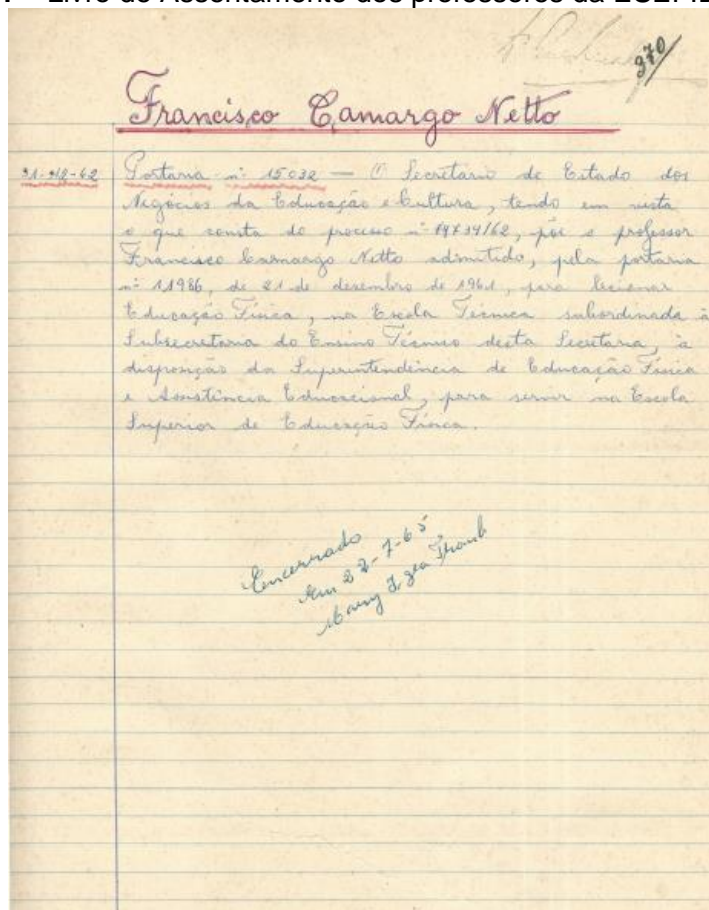 Livro de Assentamento dos professores da ESEF
370
Francisco Camargo Netto
31-12-62 Portaria nº 15032 — O Secretario de Estado dos
Negócios da Educação e Cultura, tendo em vista
o que consta do processo nº /62, põe o professor
Francisco Camargo Netto admitido, pela portaria
nº 11986, de 21 de dezembro de 1961, para lecionar
Educação Física, na Escola Técnica subordinada à
Subsecretaria do Ensino Técnico desta Secretaria, à
disposição da Superintendência de Educação Física
e Assistência Educacional, para servir na Escola
Superior de Educação Física.
Encerrado
Em 22-7-65